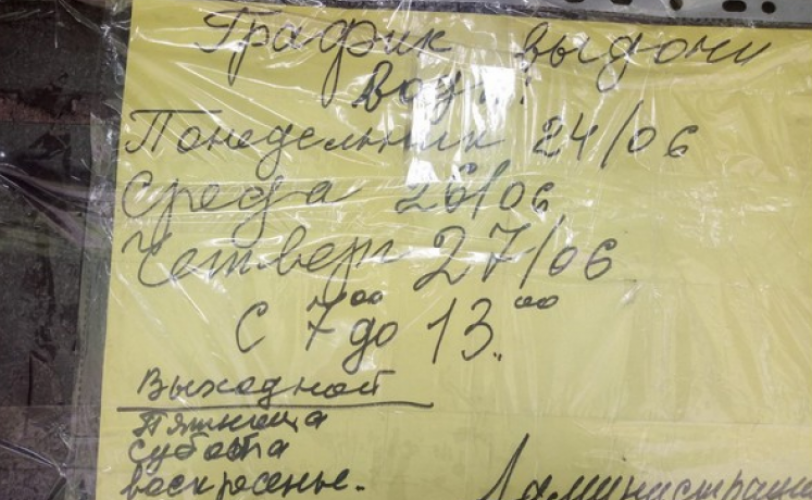 График выдачи
воды:
Понедельник 24/06
Среда 26/06
Четверг 27/06
С 7⁰⁰ до 13⁰⁰
Выходной
Пятница
Суббота
воскресенье.